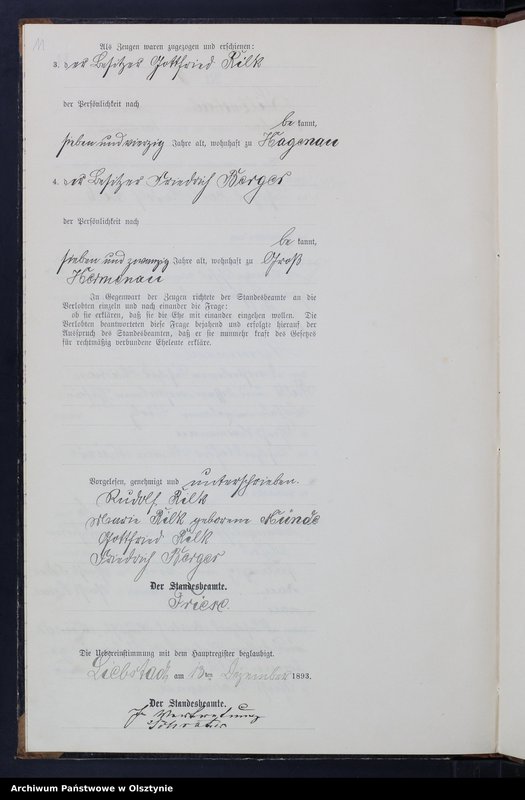 11
Als Zeugen waren zugezogen und erschienen:
3. der Besitzer Gottfried Kilk
der Persönlichkeit nach
be kannt,
sieben und vierzig Jahre alt, wohnhaft zu Hagenau
4. der Besitzer Friedrich Berger
der Persönlichkeit nach
be kannt,
sieben und zwanzig Jahre alt, wohnhaft zu Groß
Hermenau
In Gegenwart der Zeugen richtete der Standesbeamte an die
Verlobten einzeln und nach einander die Frage:
ob sie erklären, daß sie die Ehe mit einander eingehen wollen. Die
Verlobten beantworteten diese Frage bejahend und erfolgte hierauf der
Ausspruch des Standesbeamten, daß er sie nunmehr kraft des Gesetzes
für rechtmäßig verbundene Eheleute erkläre.
Vorgelesen, genehmigt und unterschrieben.
Rudolf Kilk
Marie Kilk geborene
Gottfried Kilk
Friedrich Berger
Der Standesbeamte.
Friese.
Die Uebereinstimmung mit dem Hauptregister beglaubigt.
Liebstadt am 13ten Dezember 1893.
Der Standesbeamte.
In Vertretung
Archiwum Państwowe w Olsztynie